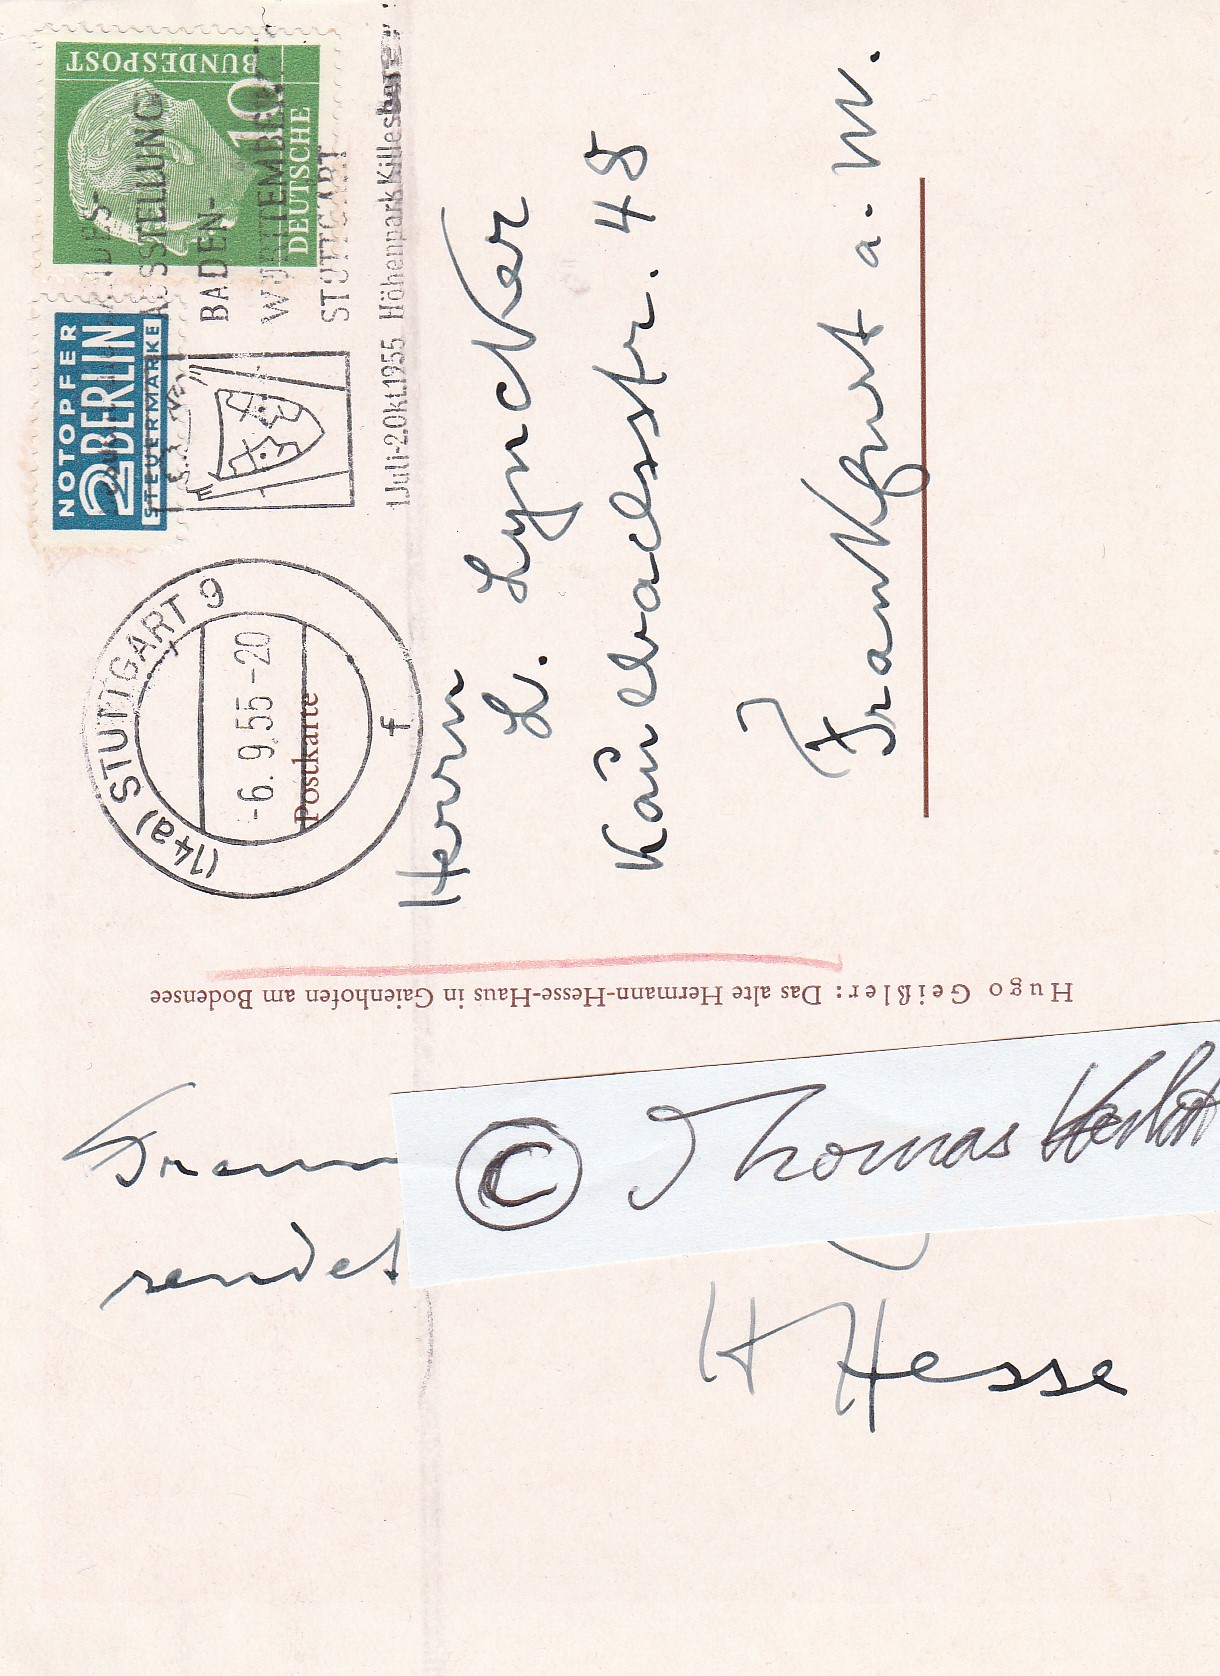 DEUTSCHE
BUNDESPOST
10
NOTOPFER
2 BERLIN
STEUERMARKE
LANDES-
AUSSTELLUNG
BADEN-
WÜRTTEMBERG
STUTTGART
1.Juli-2.Okt.1955 Höhenpark Killesberg
(14a) STUTTGART 9
-6. 9.55-20
f
Postkarte
Herrn
L. Lyncker
Kaulbachstr. 48
Frankfurt a. M.
Hugo Geißler: Das alte Hermann-Hesse-Haus in Gaienhofen am Bodensee
© Thomas
sendet
H Hesse